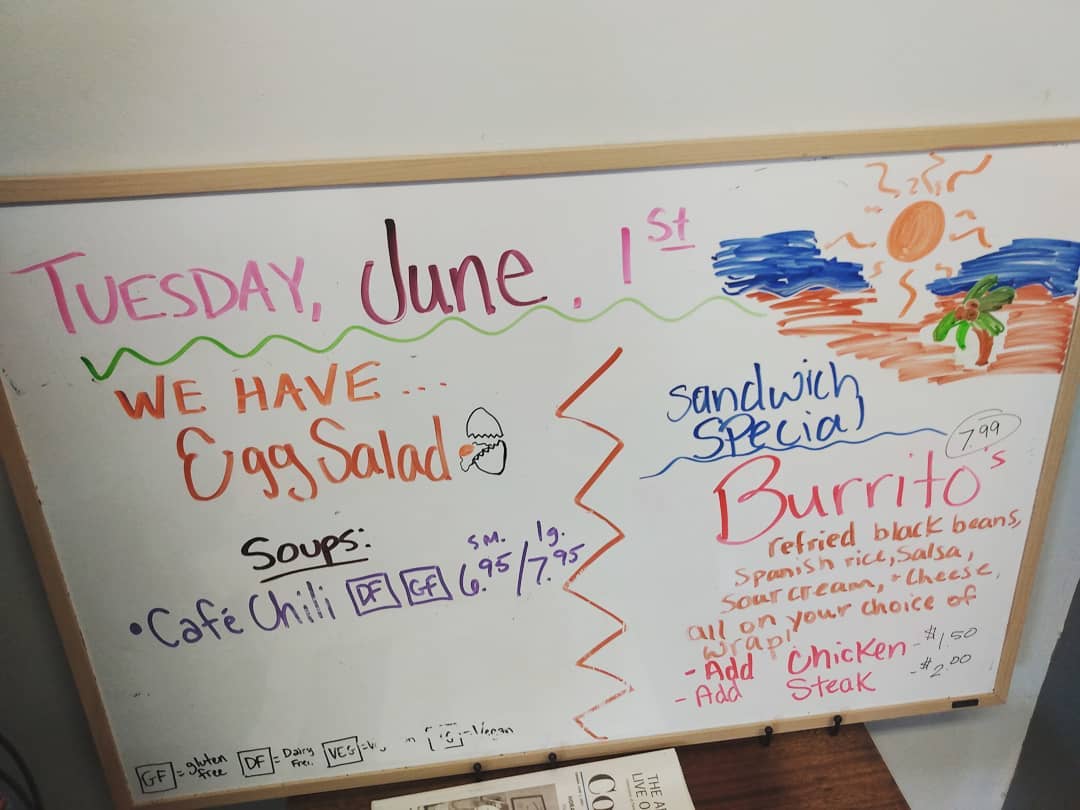 TUESDAY, June, 1st
WE HAVE...
Egg Salad
Soups:
SM. lg.
• Café Chili DF GF 6.95/7.95
GF = gluten Free DF = Dairy Free. VEG = Vegan
Sandwich
Special
7.99
Burrito's
refried black beans,
Spanish rice, Salsa,
Sour cream, + Cheese,
all on your choice of
wrap!
- Add Chicken - $1.50
- Add Steak - $2.00
THE A
LIVE O
Co